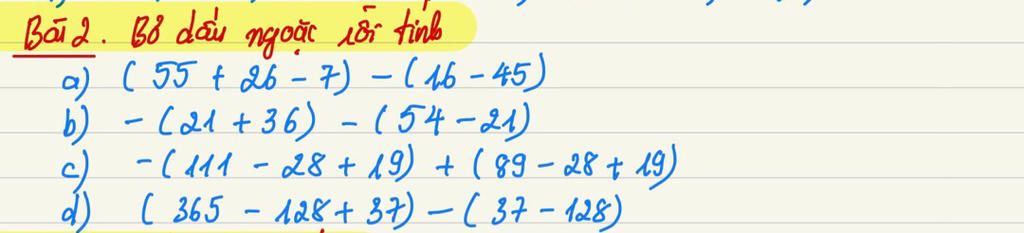 Bài 2. Bỏ dấu ngoặc rồi tính
a) (55 + 26 - 7) - (16 - 45)
b) - (21 + 36) - (54 - 21)
c) - (111 - 28 + 19) + (89 - 28 + 19)
d) (365 - 128 + 37) - (37 - 128)